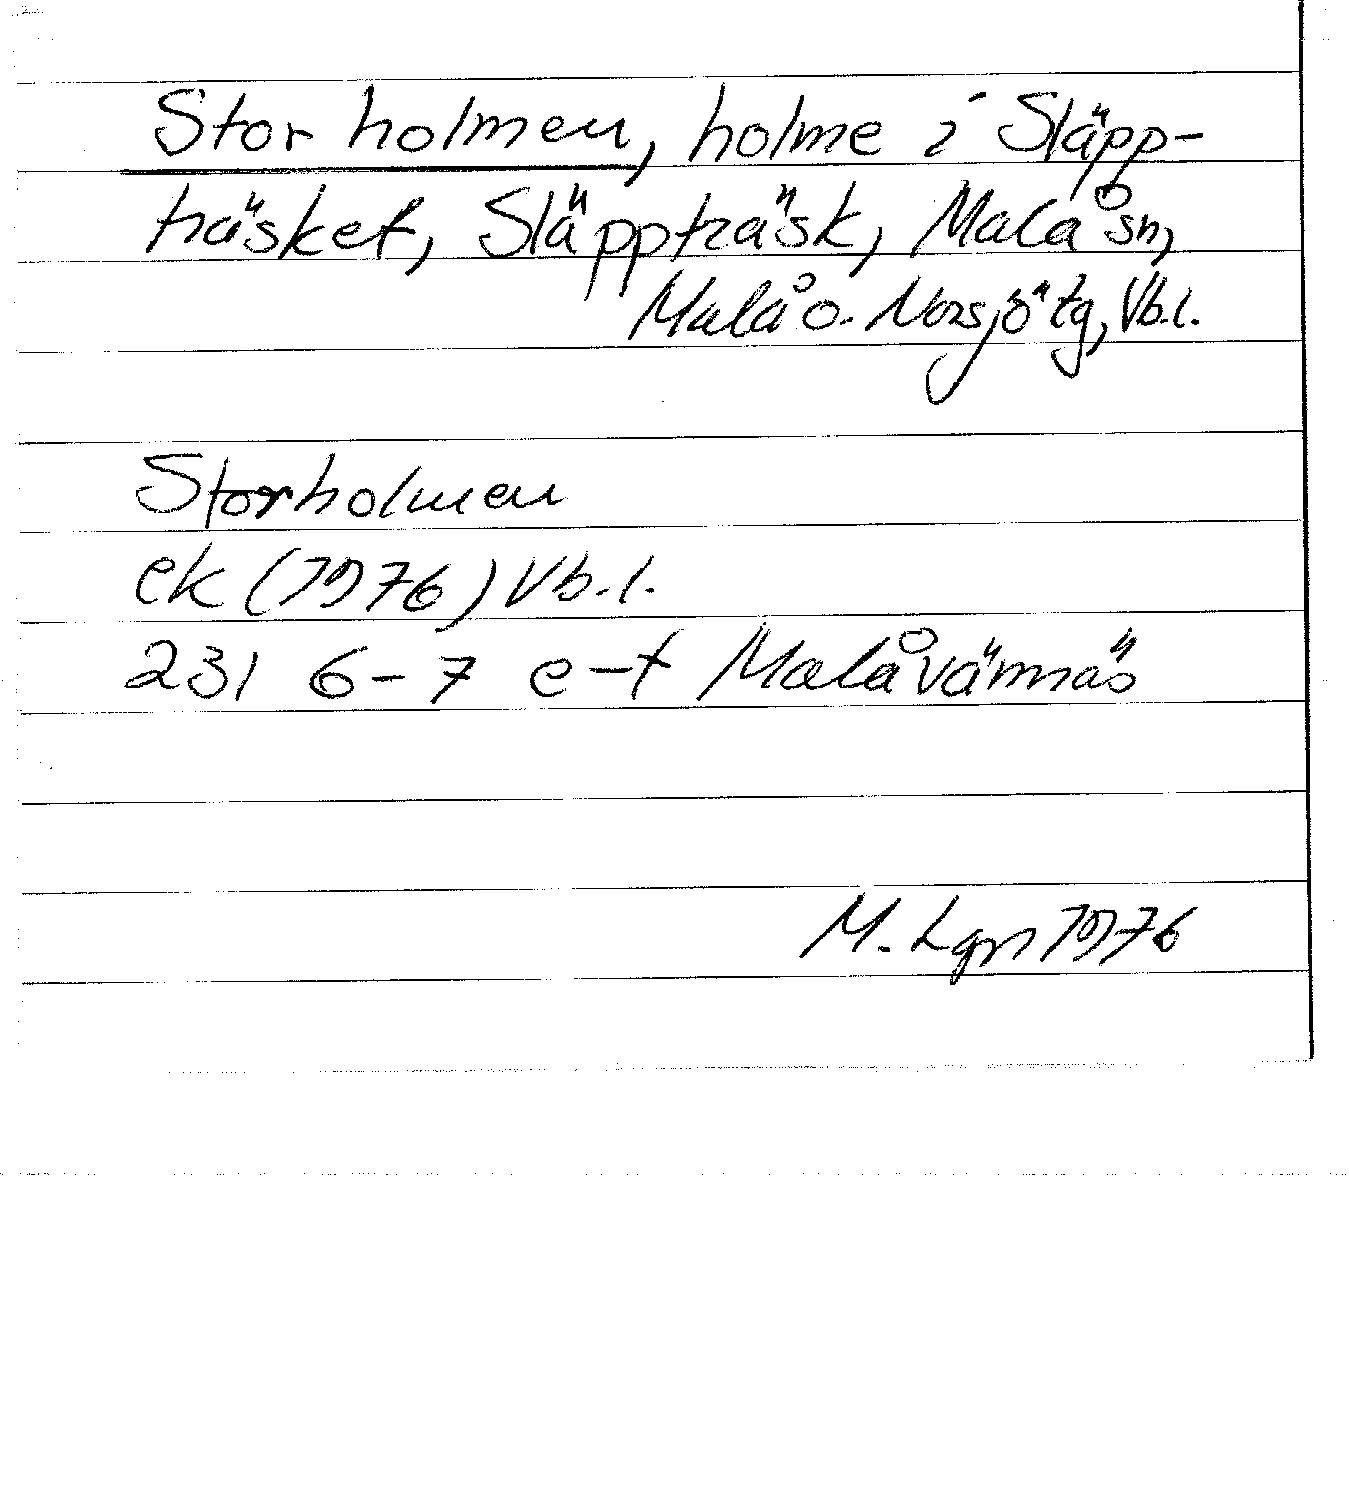 Stor holmen, holme i Släpp-
träsket, Släppträsk, Malå sn,
Malå o. Norsjö tg, Vb.l.
Storholmen
ek (1976) Vb.l.
231 6-7 e-f Malåvännäs
M. Lgn 1976